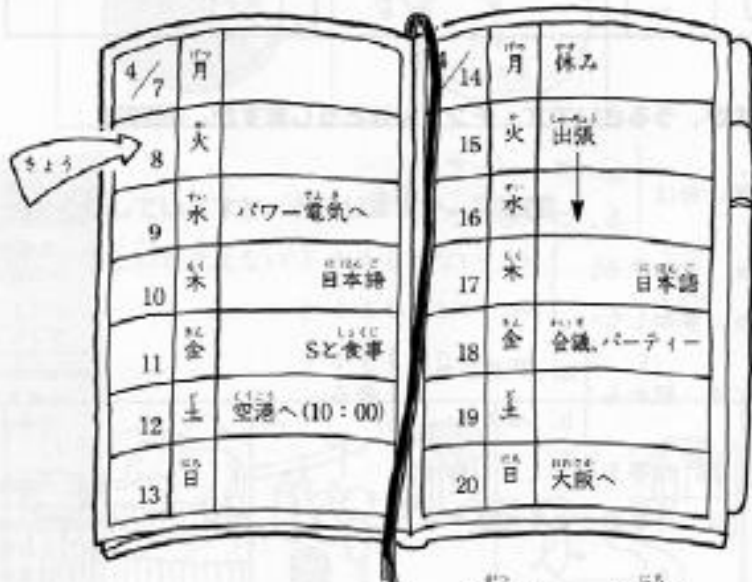 きょう
4/7 月
8 火
9 水 パワー電気へ
10 木 日本語
11 金 Sと食事
12 土 空港へ(10:00)
13 日
4/14 月 休み
15 火 出張
16 水
17 木 日本語
18 金 会議、パーティー
19 土
20 日 大阪へ